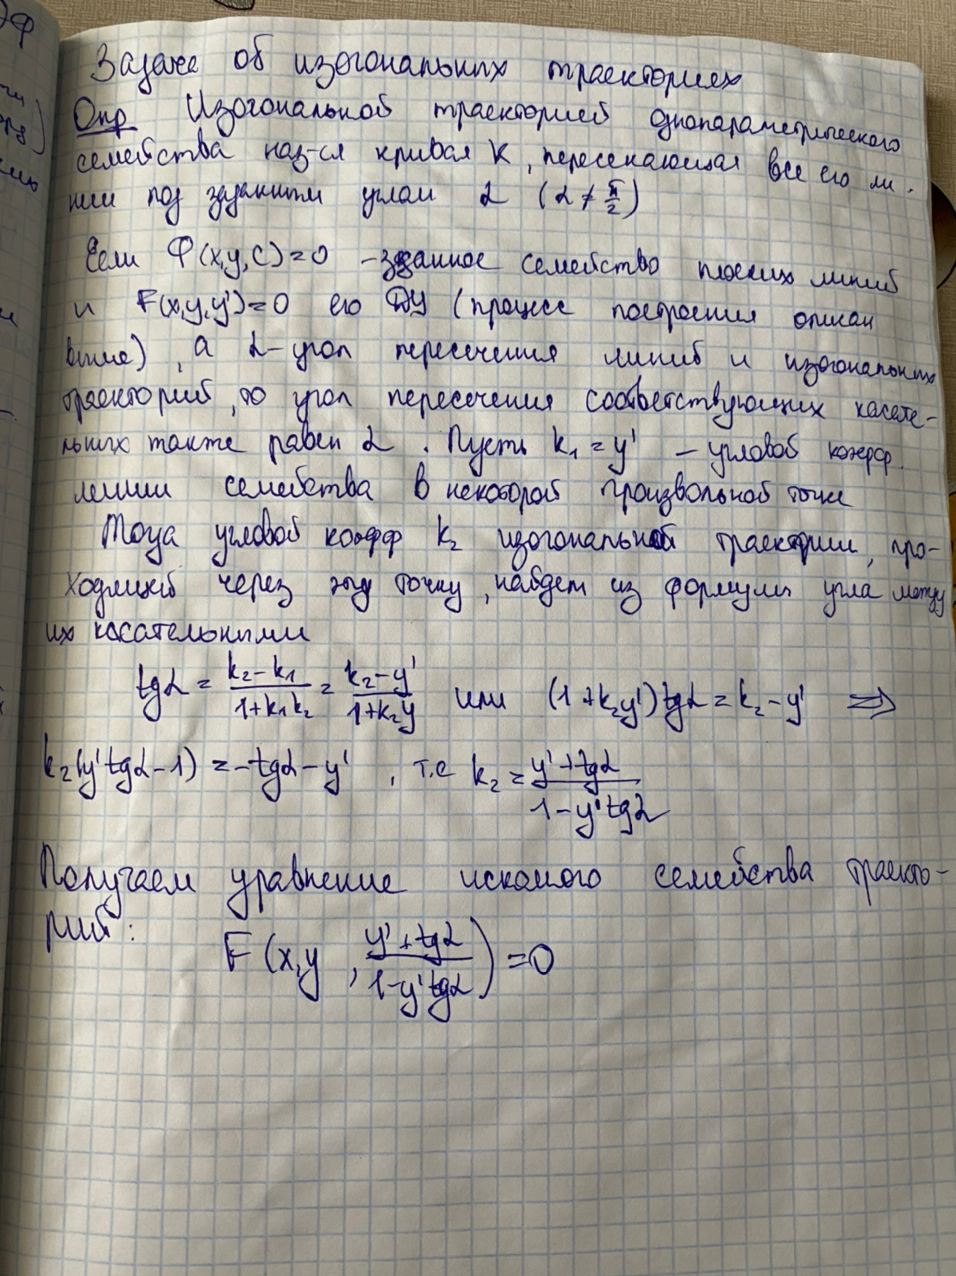 Задача об изогональных траекториях
Опр Изогональной траекторией однопараметрического
семейства наз-ся кривая K, пересекающая все его ли-
нии под заданным углом α (α ≠ π/2)
Если Ф(x,y,c)=0 – заданное семейство плоских линий
и F(x,y,y')=0 его ДУ (процесс построения описан
выше), а α – угол пересечения линий и изогональных
траекторий, то угол пересечения соответствующих касате-
льных также равен α. Пусть k₁ = y' – угловой коэфф.
линии семейства в некоторой произвольной точке
Тогда угловой коэфф k₂ изогональной траектории, про-
ходящей через эту точку, найдем из формулы угла между
их касательными
tgα = (k₂-k₁)/(1+k₁k₂) = (k₂-y')/(1+k₂y) или (1+k₂y')tgα = k₂-y' ⇒
k₂(y'tgα-1) = -tgα-y' , т.е k₂ = (y'+tgα)/(1-y'tgα)
Получаем уравнение искомого семейства траекто-
рий:
F(x,y, (y'+tgα)/(1-y'tgα)) = 0